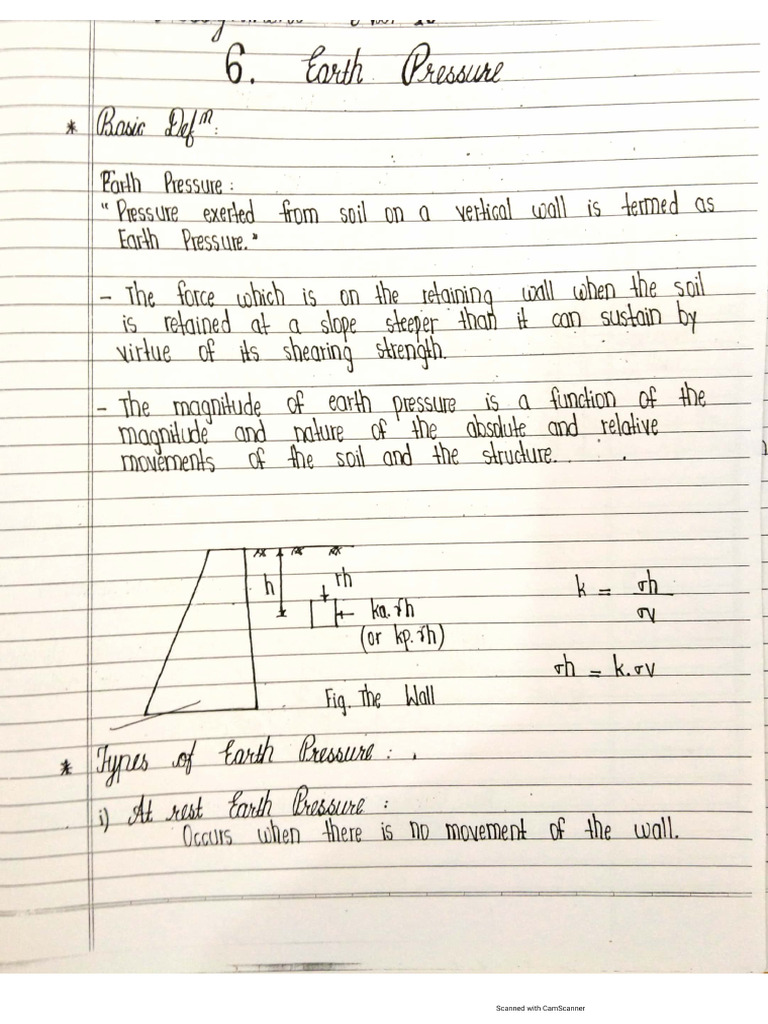 6. Earth Pressure
* Basic Defⁿ:
Earth Pressure :
“Pressure exerted from soil on a vertical wall is termed as
Earth Pressure.”
- The force which is on the retaining wall when the soil
is retained at a slope steeper than it can sustain by
virtue of its shearing strength.
- The magnitude of earth pressure is a function of the
magnitude and nature of the absolute and relative
movements of the soil and the structure.
h
rh
ka.rh
(or kp.rh)
k = σh
σv
σh = k.σv
Fig. The Wall
* Types of Earth Pressure :
i) At rest Earth Pressure :
Occurs when there is no movement of the wall.
Scanned with CamScanner